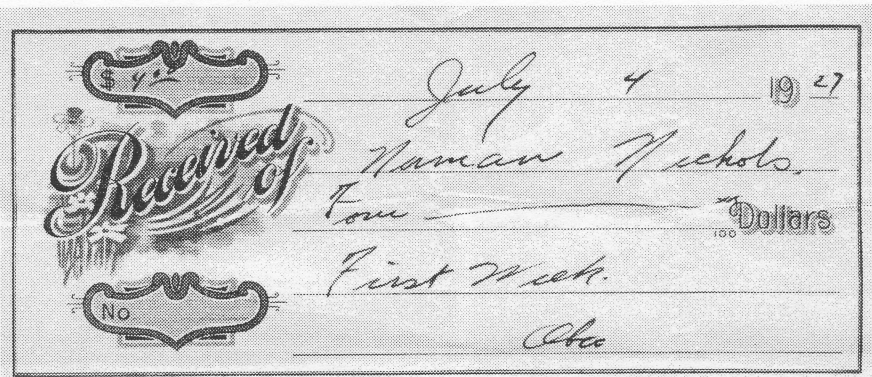 $ 4.00
July 4 1927
Received of Naman Nichols.
Four Dollars
100
First Week.
No